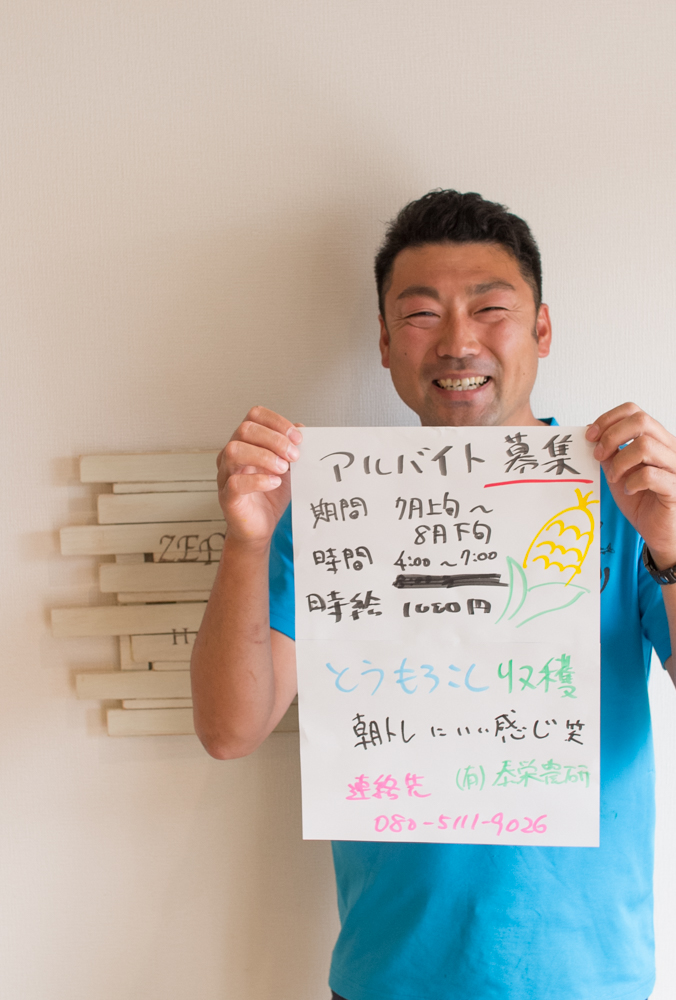 アルバイト 募集
期間 7月上旬〜
8月下旬
時間 4:00〜7:00
時給 1000円
とうもろこし 収穫
朝トレにいい感じ笑
(有)泰栄農研
連絡先
080-5111-9026
ZED
H